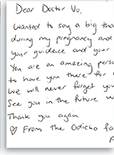 Dear Doctor Vo,
I wanted to say a big tha
during my pregnancy and
your guidance and your
You are an amazing perso
to have you there for
We will never forget you
See you in the future w
Thank you again
♡ From the Odicho fa